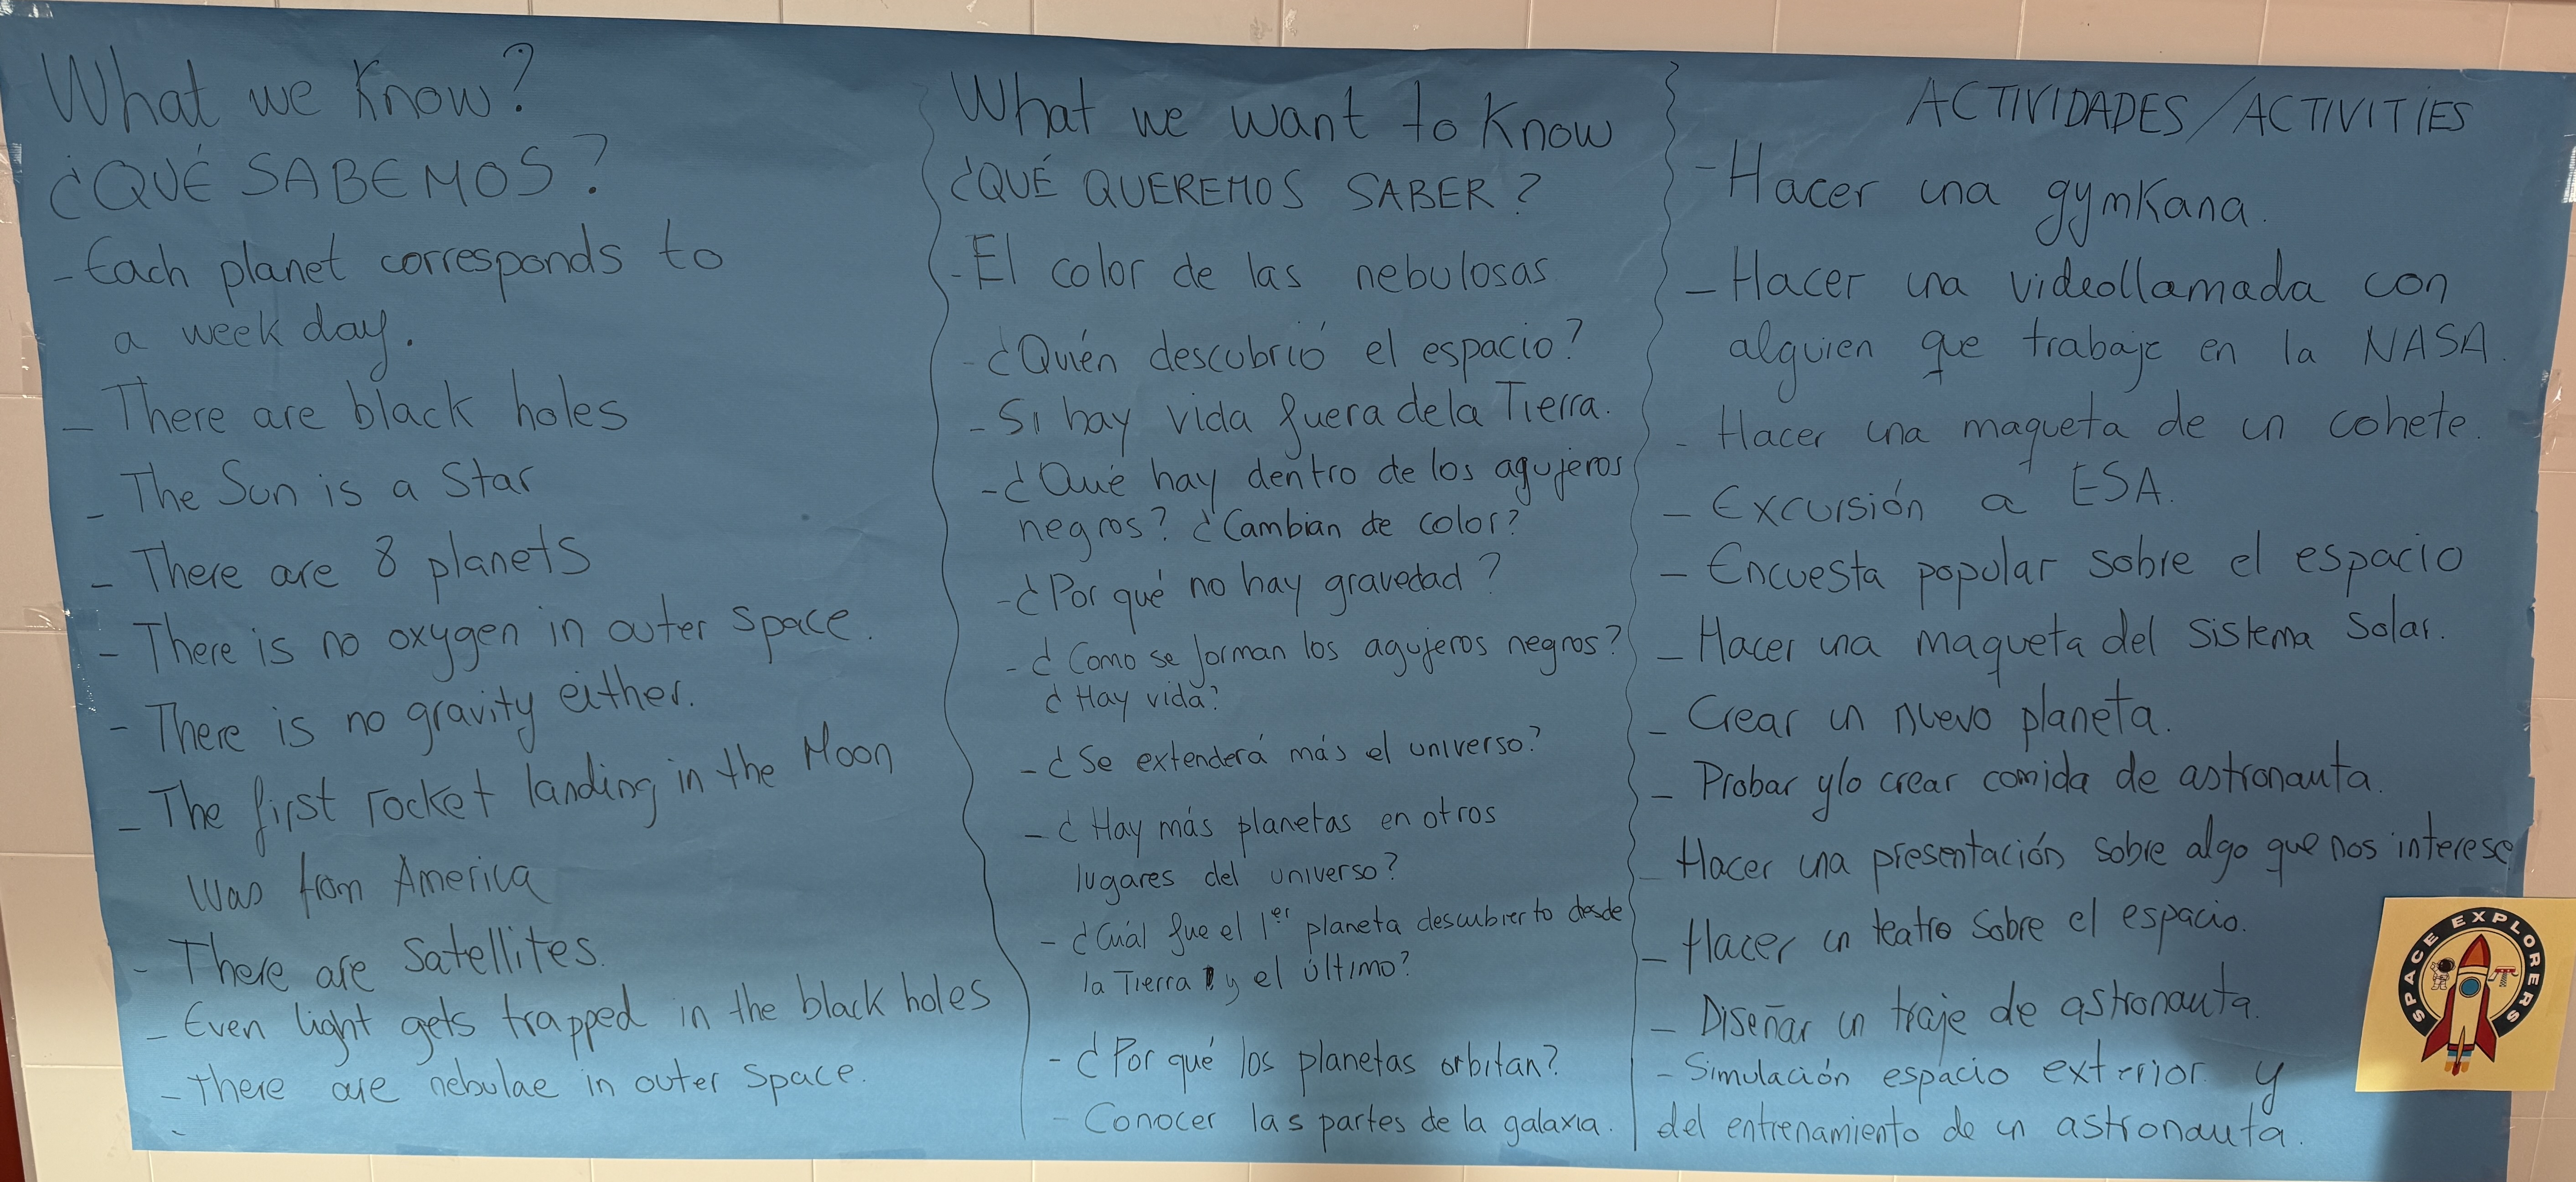 What we Know?
¿QUÉ SABEMOS?
- Each planet corresponds to
a week day.
- There are black holes
- The Sun is a Star
- There are 8 planets
- There is no oxygen in outer space.
- There is no gravity either.
- The first rocket landing in the Moon
was from America
- There are satellites.
- Even light gets trapped in the black holes
- There are nebulae in outer space.
What we want to Know
¿QUÉ QUEREMOS SABER?
- El color de las nebulosas
- ¿Quién descubrió el espacio?
- Si hay vida fuera de la Tierra.
- ¿Qué hay dentro de los agujeros
negros? ¿Cambian de color?
- ¿Por qué no hay gravedad?
- ¿Como se forman los agujeros negros?
¿Hay vida?
- ¿Se extenderá más el universo?
- ¿Hay más planetas en otros
lugares del universo?
- ¿Cuál fue el 1er planeta descubierto desde
la Tierra y el último?
- ¿Por qué los planetas orbitan?
- Conocer las partes de la galaxia.
ACTIVIDADES/ACTIVITIES
- Hacer una gymkana.
- Hacer una videollamada con
alguien que trabaje en la NASA.
- Hacer una maqueta de un cohete.
- Excursión a ESA.
- Encuesta popular sobre el espacio
- Hacer una maqueta del sistema solar.
- Crear un nuevo planeta.
- Probar y/o crear comida de astronauta.
- Hacer una presentación sobre algo que nos interese
- Hacer un teatro sobre el espacio.
- Diseñar un traje de astronauta.
- Simulación espacio exterior y
del entrenamiento de un astronauta.
SPACE EXPLORERS